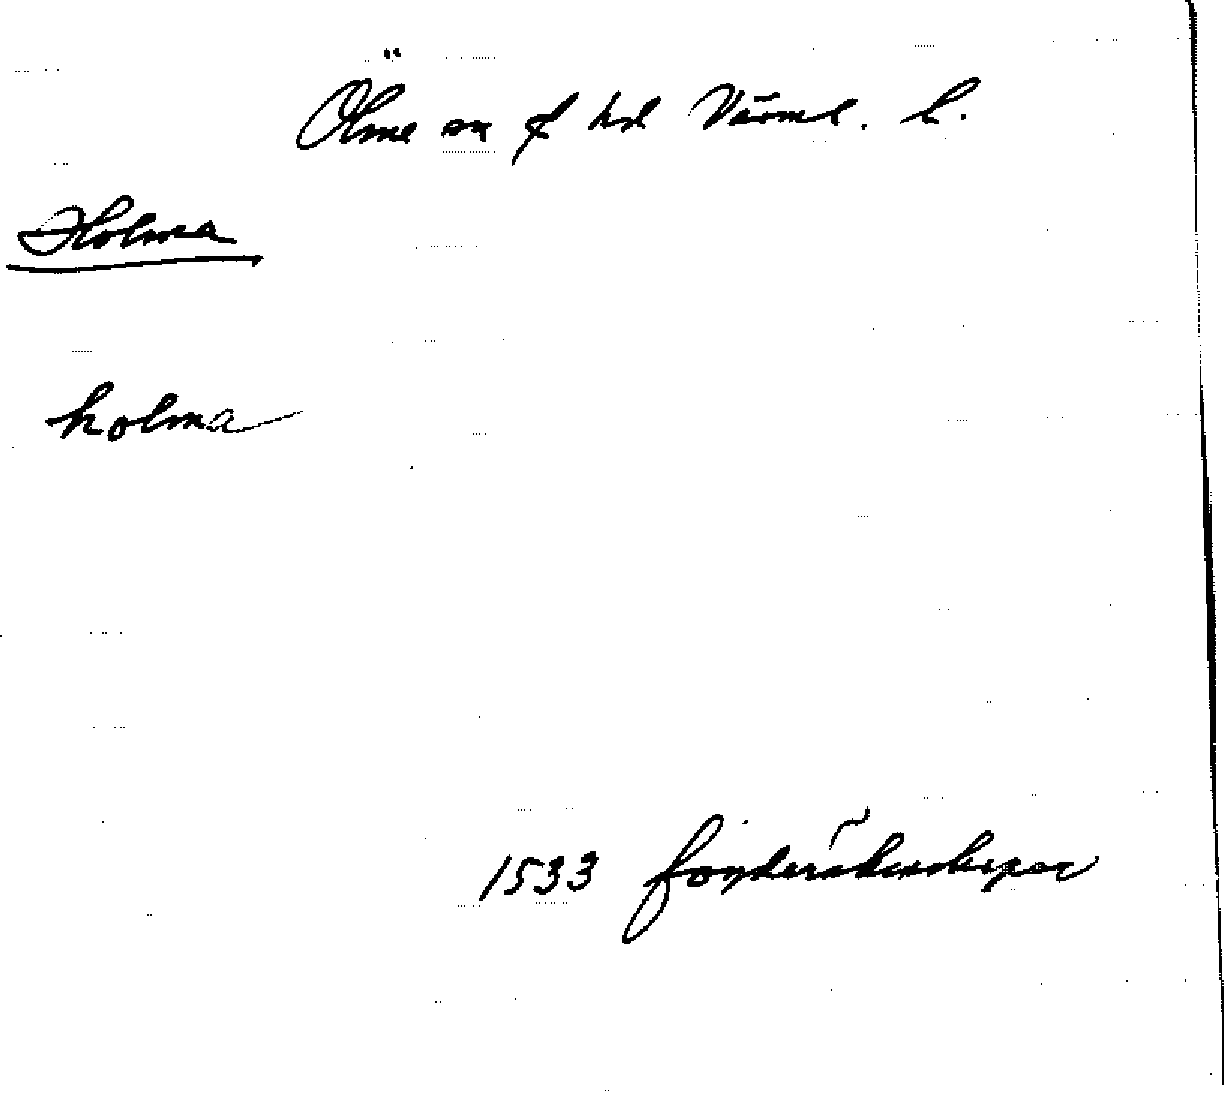 Ölme sn o hd Värml. l.
Holma
holma
1533 fogderäkenskaper